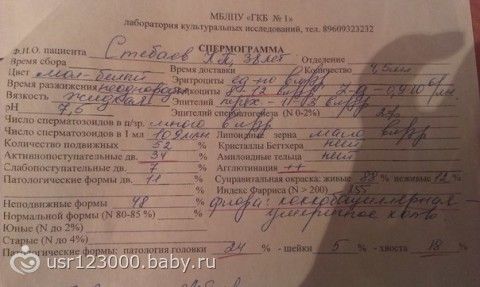 МБЛПУ «ГКБ № 1»
лаборатория культуральных исследований, тел. 89609323232
СПЕРМОГРАММА
Ф.И.О. пациента 38 лет Отделение
Время сбора Время доставки Количество 4,5 мл
Цвет мол-белый Эритроциты ед-но в п/зр
Время разжижения Лейкоциты 8-12 в п/зр
Вязкость Эпителий 11-13 в п/зр
pH 7,5 Эпителий сперматогенеза (N 0-2%) 2%
Число сперматозоидов в п/зр. много в п/зр
Число сперматозоидов в 1 мл Липоидные зерна мало в п/зр
Количество подвижных 52 % Кристаллы Беттхера нет
Активнопоступательные дв. 34 % Амилоидные тельца нет
Слабопоступательные дв. 7 % Агглютинация ++
Патологические формы дв. 11 % Суправитальная окраска: живые 88 % неживые 12 %
Индекс Фарриса (N > 200) 155
Неподвижные формы 48 % флора: коккобациллярная -
Нормальной формы (N 80-85 %) умеренное кол-во
Юные (N до 2%)
Старые (N до 4%)
Патологические формы: патология головки 24 % - шейки 5 % - хвоста 18 %
usr123000.baby.ru